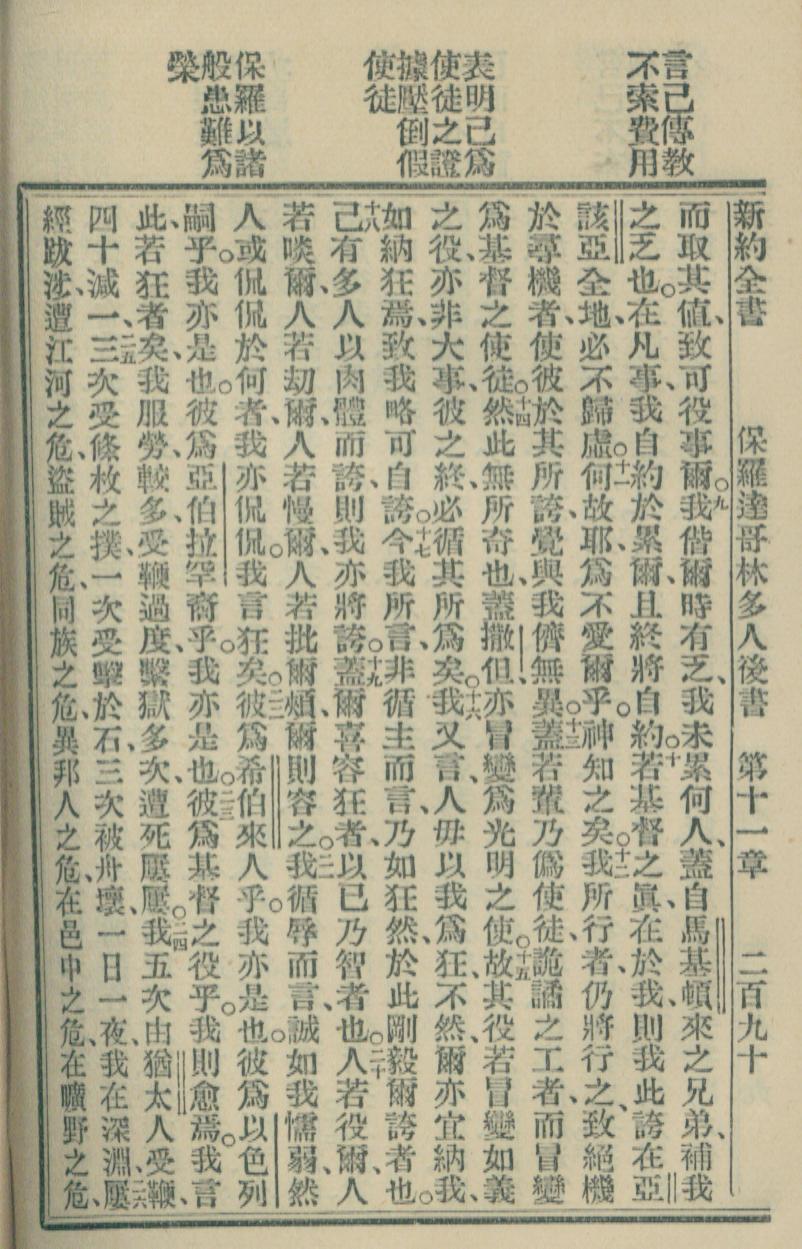 言己傳教
不索費用
表明己爲
使徒之證
據壓倒假
使徒
保羅以諸
般患難爲
榮
新約全書 保羅達哥林多人後書 第十一章 二百九十
而取其値、致可役事爾。九我偕爾時有乏、我未累何人、蓋自馬基頓來之兄弟、補我
之乏也。在凡事、我自約於累爾、且終將自約。十若基督之眞、在於我、則我此誇在亞
該亞全地、必不歸虛。十一何故耶、爲不愛爾乎。神知之矣。十二我所行者、仍將行之、致絕機
於尋機者、使彼於其所誇、覺與我儕無異。十三蓋若輩乃僞使徒、詭譎之工者、而冒變
爲基督之使徒。十四然此無所奇也、蓋撒但、亦冒變爲光明之使。十五故其役若冒變如義
之役、亦非大事、彼之終、必循其所爲矣。十六我又言、人毋以我爲狂、不然、爾亦宜納我、
如納狂焉、致我略可自誇。十七今我所言、非循主而言、乃如狂然、於此剛毅爾誇者也。
十八己有多人以肉體而誇、則我亦將誇。十九蓋爾喜容狂者、以已乃智者也。二十人若役爾、人
若啖爾、人若刧爾、人若慢爾、人若批爾頰、爾則容之。二一我循辱而言、誠如我懦弱、然
人或侃侃於何者、我亦侃侃。我言狂矣。二二彼爲希伯來人乎。我亦是也。彼爲以色列
嗣乎。我亦是也。彼爲亞伯拉罕裔乎。我亦是也。二三彼爲基督之役乎。我則愈焉。我言
此、若狂者矣、我服勞、較多、受鞭過度、繫獄多次、遭死屢屢。二四我五次由猶太人受鞭、
四十減一、二五三次受條枚之撲、一次受擊於石、三次被舟壞、一日一夜、我在深淵、二六屢
經跋涉、遭江河之危、盜賊之危、同族之危、異邦人之危、在邑中之危、在曠野之危、